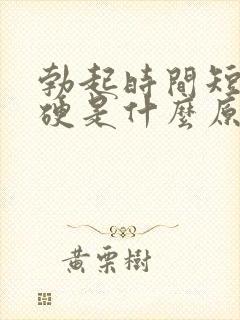 勃起時間短
硬是什麼原
黃栗樹